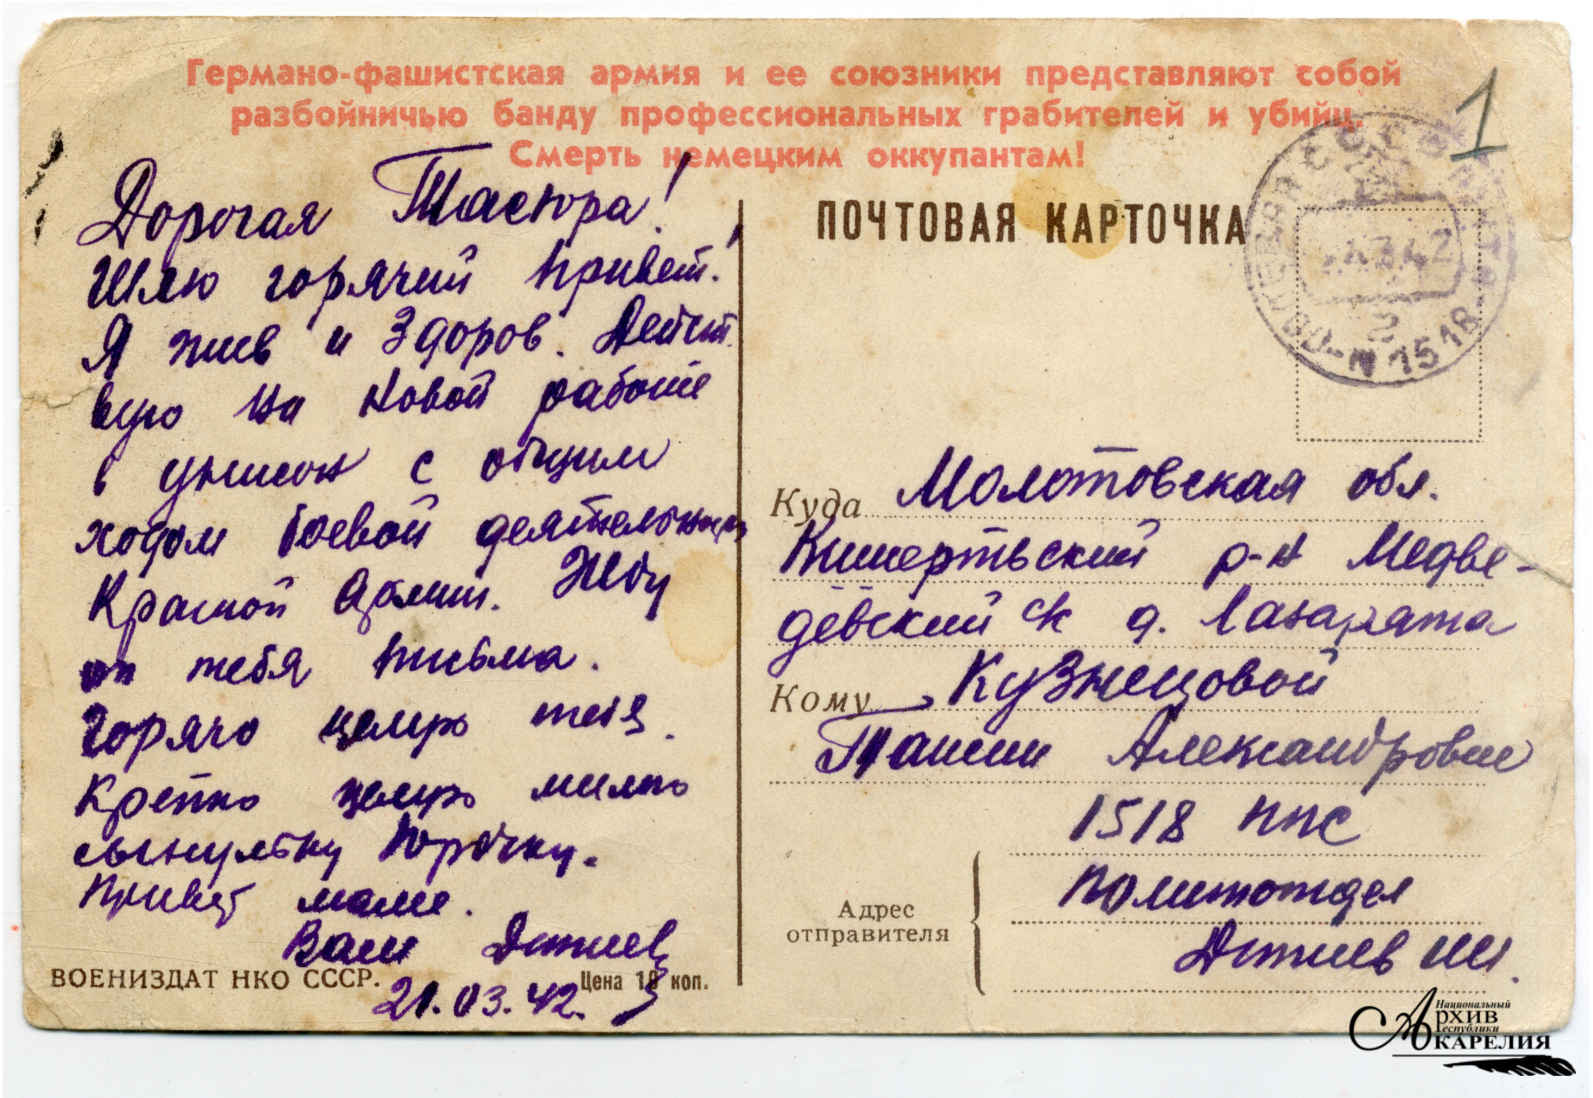 Германо-фашистская армия и ее союзники представляют собой
разбойничью банду профессиональных грабителей и убийц.
Смерть немецким оккупантам!
1
Дорогая Таскира!
Шлю горячий привет!
Я жив и здоров. Дейст
вую на новой работе
в унисон с общим
ходом боевой деятельности
Красной Армии. Жду
от тебя письма.
Горячо целую тебя.
Крепко целую милого
сынульку Юрочку.
Привет маме.
Ваш
21.03.42.
ВОЕНИЗДАТ НКО СССР.
Цена 10 коп.
ПОЧТОВАЯ КАРТОЧКА
3 42
2
N 1518
Куда Молотовская обл.
Кишертьский р-н Медве-
дёвский с/с д.
Кому Кузнецовой
Таисии Александровне
Адрес
отправителя
1518 ППС
Политотдел
Национальный
АРХИВ
Республики
КАРЕЛИЯ